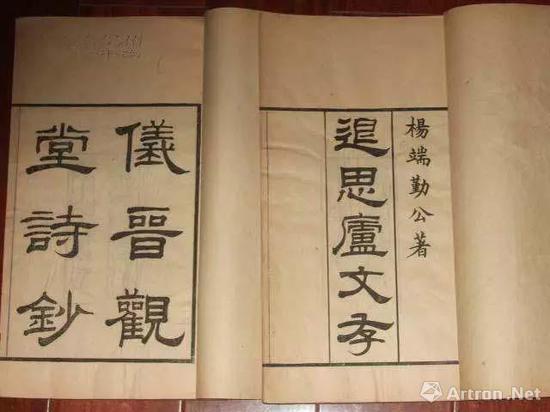 楊端勤公著
退思廬文存
儀晉觀
堂詩鈔
Artron.Net